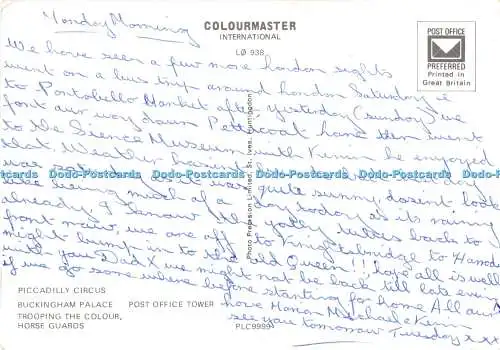 Monday Morning
COLOURMASTER
INTERNATIONAL
LØ 938
POST OFFICE
PREFERRED
Printed in
Great Britain
We have seen a few more london sights
went on a bus trip around london Saturday &
to Portobello Market after yesterday (Sunday) we
our way down Petticoat Lane then went
to the Sience Museum with Kevin he enjoyed
that. Weather hasnt been
was Sat it was quite sunny, dosent look
like being much of a day today as its raining
already I know. Mog gotty tutes back to
front now, we are off to Knightsbridge to Harrods
might bump in to the old Queen!!! hope all is well
with you & Dad X we might not be back till late even
if we go some where before starting for home All our
love Marion Michael & Kevin
see you tomorrow Tuesday xxx
Photo Precision Limited, St. Ives, Huntingdon
Dodo-Postcards Dodo-Postcards Dodo-Postcards Dodo-Postcards
PICCADILLY CIRCUS
BUCKINGHAM PALACE POST OFFICE TOWER
TROOPING THE COLOUR,
HORSE GUARDS
PLC9999